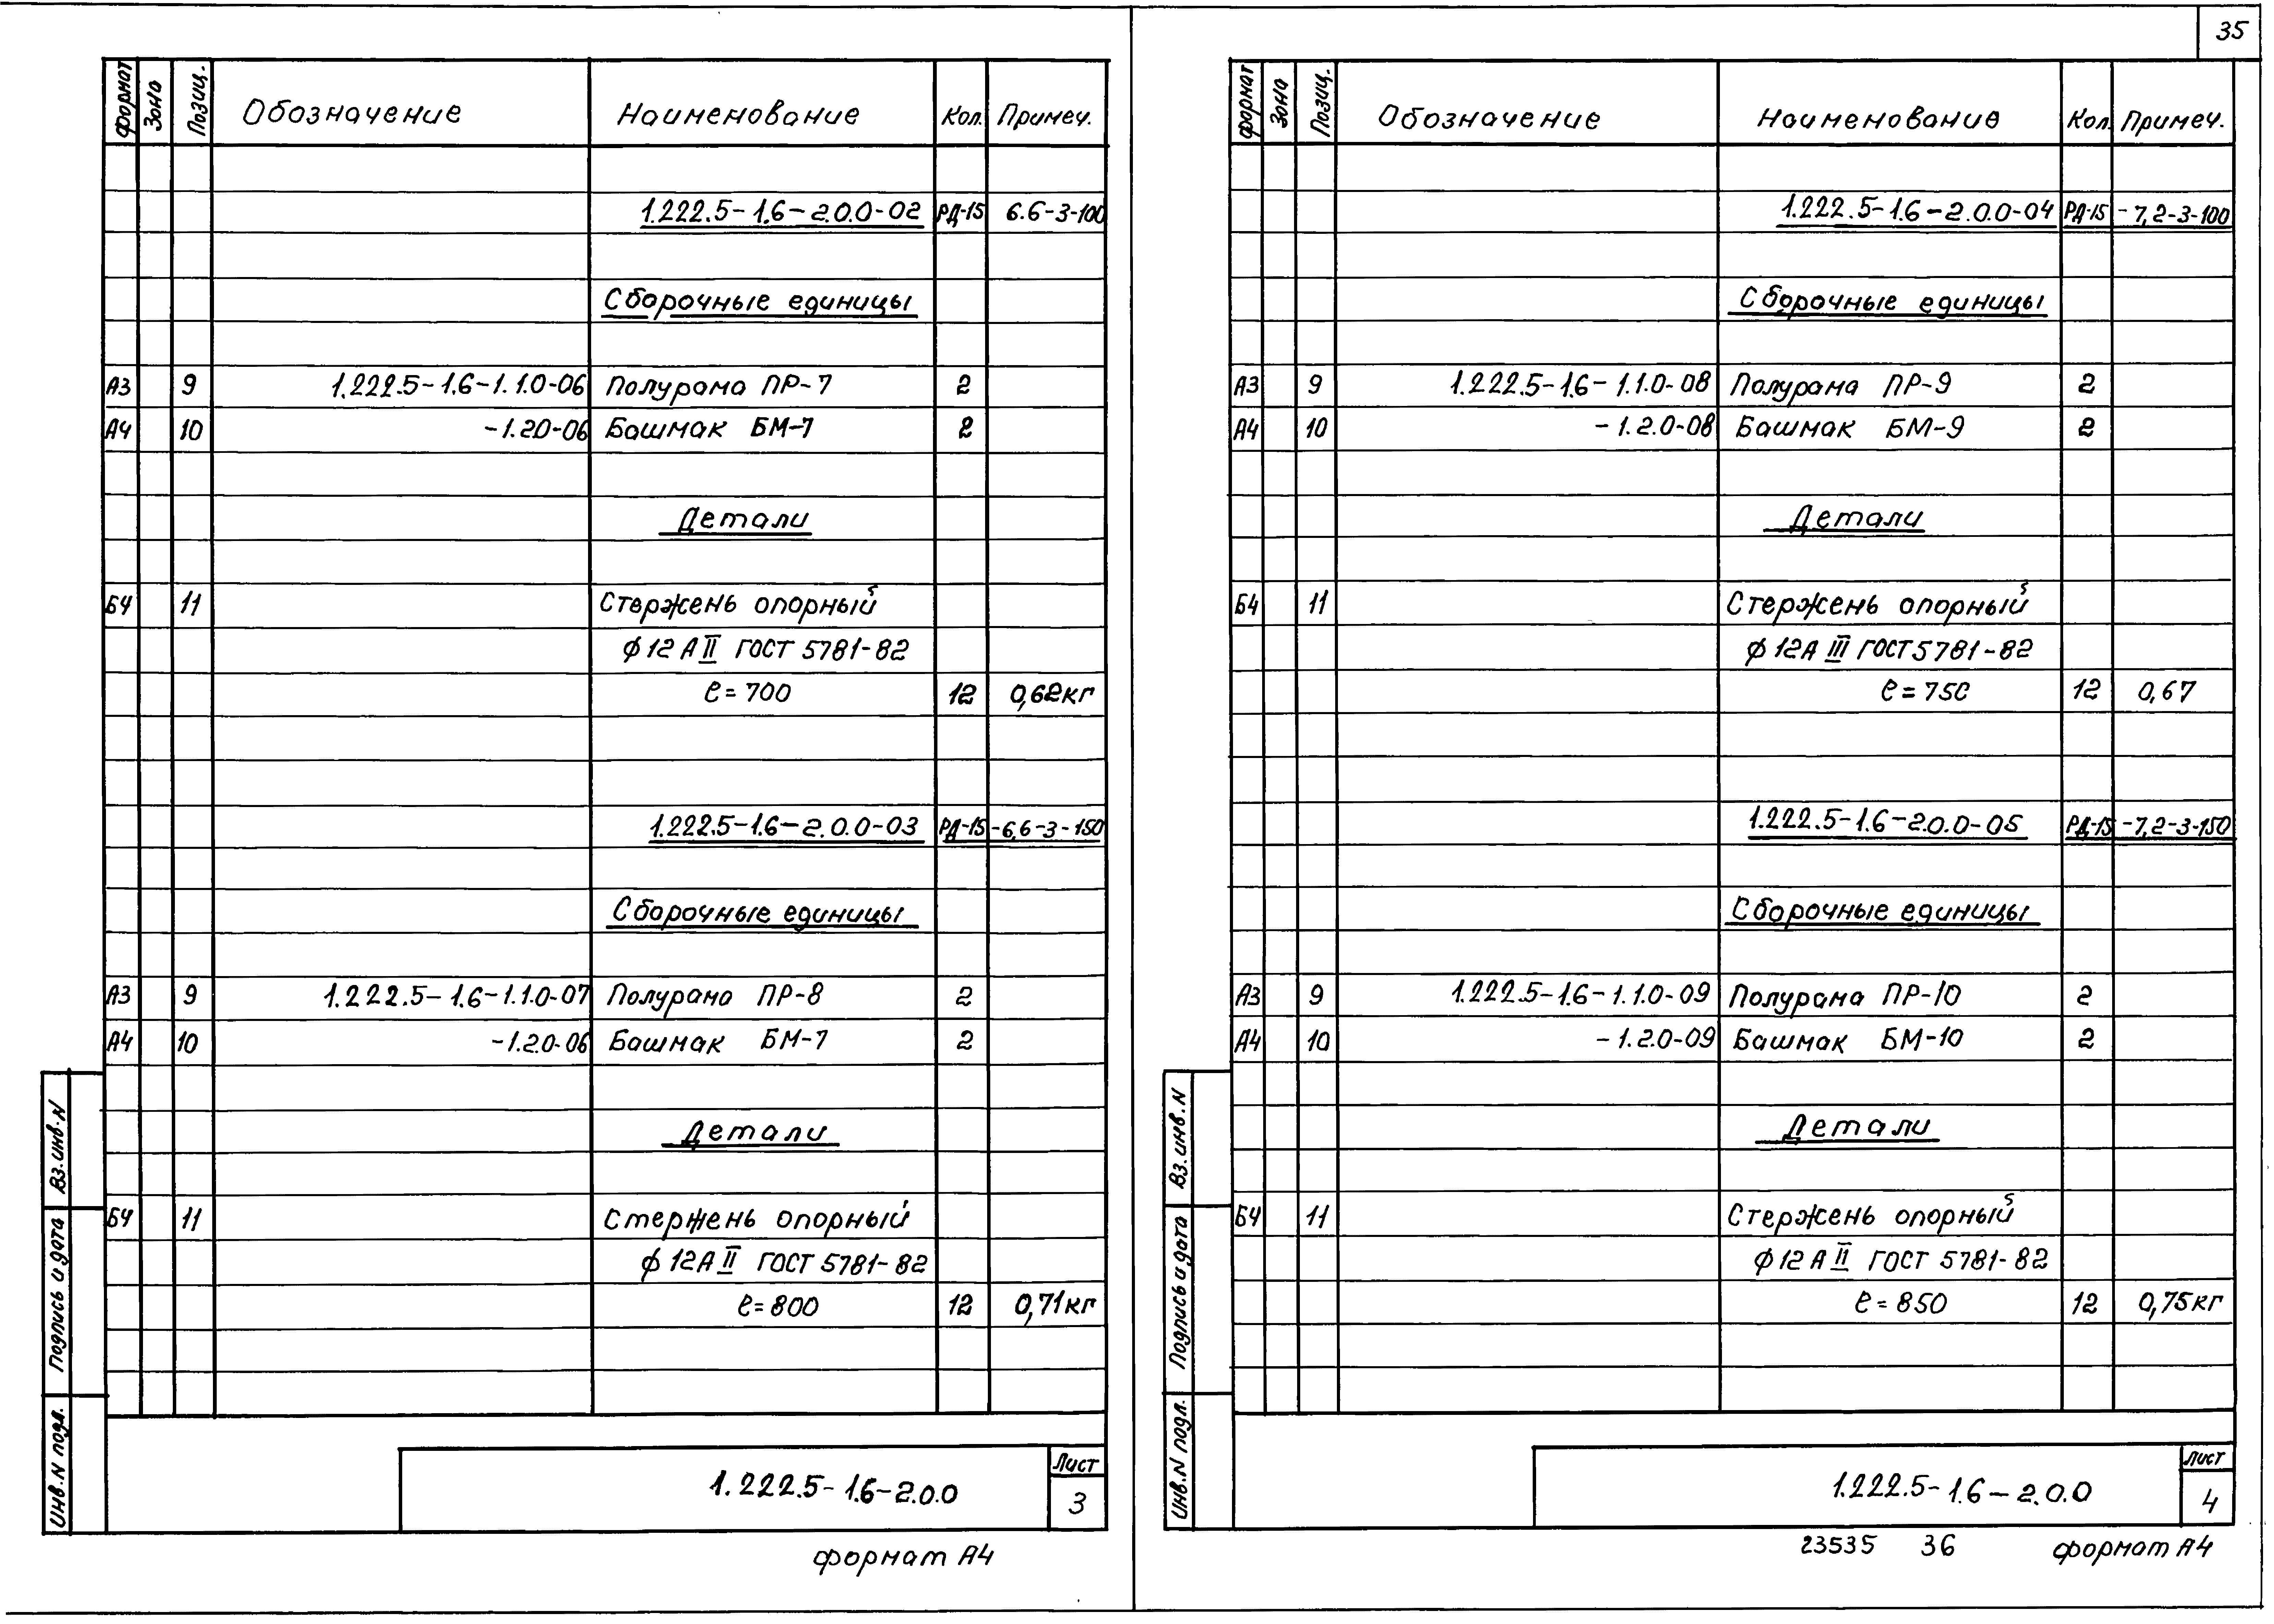 35
формат Зона Позиц. Обозначение Наименование Кол. Примеч.
1.222.5-1.6-2.0.0-02 РД-15 6.6-3-100
Сборочные единицы
А3 9 1.222.5-1.6-1.1.0-06 Полурама ПР-7 2
А4 10 -1.2.0-06 Башмак БМ-7 2
Детали
Б4 11 Стержень опорный
ф12 А II ГОСТ 5781-82
ℓ=700 12 0,62кг
1.222.5-1.6-2.0.0-03 РД-15 -6,6-3-150
Сборочные единицы
А3 9 1.222.5-1.6-1.1.0-07 Полурама ПР-8 2
А4 10 -1.2.0-06 Башмак БМ-7 2
Детали
Б4 11 Стержень опорный
ф 12А II ГОСТ 5781-82
ℓ=800 12 0,71кг
Вз.инв.N
Подпись и дата
Инв.N подл.
1.222.5-1.6-2.0.0
Лист
3
формат А4
формат Зона Позиц. Обозначение Наименование Кол. Примеч.
1.222.5-1.6-2.0.0-04 РД-15 -7,2-3-100
Сборочные единицы
А3 9 1.222.5-1.6-1.1.0-08 Полурама ПР-9 2
А4 10 -1.2.0-08 Башмак БМ-9 2
Детали
Б4 11 Стержень опорный
ф 12А III ГОСТ 5781-82
ℓ=750 12 0,67
1.222.5-1.6-2.0.0-05 РД-15 -7,2-3-150
Сборочные единицы
А3 9 1.222.5-1.6-1.1.0-09 Полурама ПР-10 2
А4 10 -1.2.0-09 Башмак БМ-10 2
Детали
Б4 11 Стержень опорный
ф12 А II ГОСТ 5781-82
ℓ=850 12 0,75кг
Вз.инв.N
Подпись и дата
Инв.N подл.
1.222.5-1.6-2.0.0
Лист
4
23535 36 формат А4